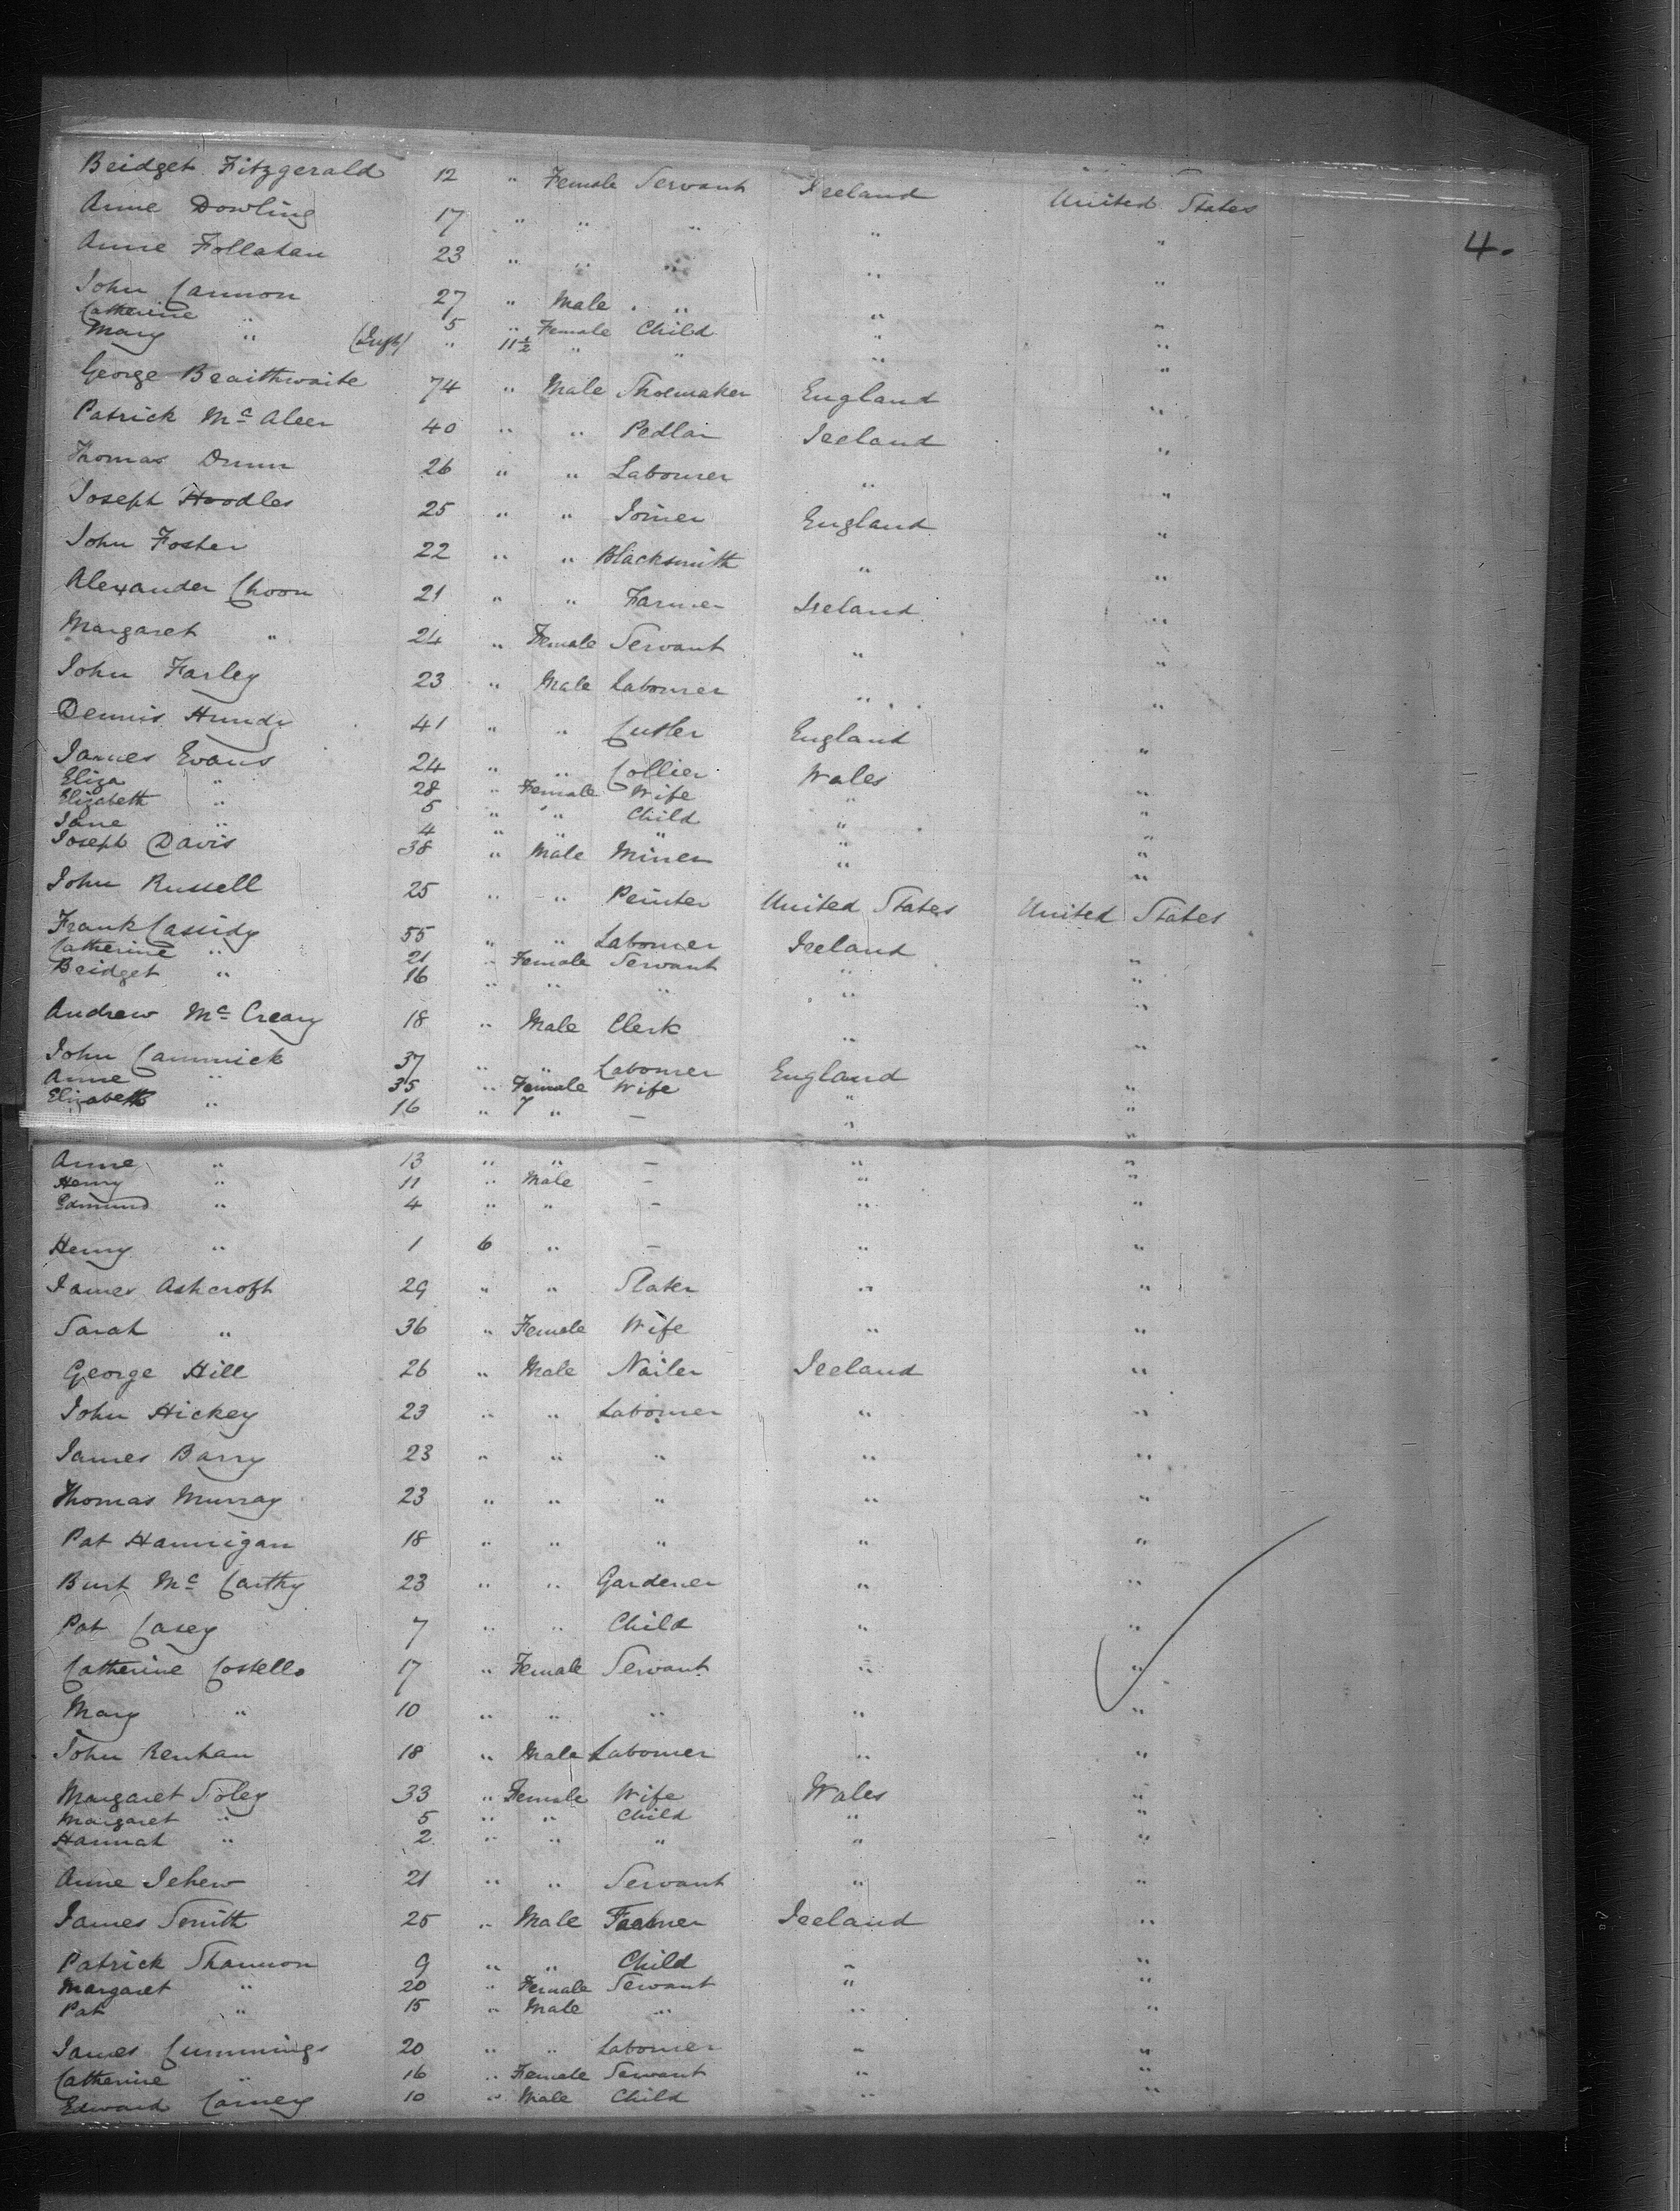 Bridget Fitzgerald 12 " Female Servant Ireland United States
Anne Dowling 17 " " " " "
4.
Anne Follahan 23 " " " " "
John Cannon 27 " Male " " "
Catherine " 5 " Female Child " "
Mary " (Inft) " 11½ " " " "
George Braithwaite 74 " Male Shoemaker England "
Patrick Mc Aleer 40 " " Pedlar Ireland "
Thomas Dunn 26 " " Labourer " "
Joseph Hoodles 25 " " Joiner England "
John Foster 22 " " Blacksmith " "
Alexander Choon 21 " " Farmer Ireland "
Margaret " 24 " Female Servant " "
John Farley 23 " Male Labourer " "
Dennis Hundy 41 " " Cutler England "
James Evans 24 " " Collier Wales "
Eliza " 28 " Female Wife " "
Elizabeth " 5 " " Child " "
Jane " 4 " " " " "
Joseph Davis 38 " Male Miner " "
John Russell 25 " " Printer United States United States
Frank Cassidy 55 " " Labourer Ireland "
Catherine " 21 " Female Servant " "
Bridget " 16 " " " " "
Andrew Mc Creary 18 " Male Clerk " "
John Cammick 37 " " Labourer England "
Anne " 35 " Female Wife " "
Elizabeth " 16 " " – " "
Anne " 13 " " – " "
Henry " 11 " Male – " "
Edmund " 4 " " – " "
Henry " 1 6 " – " "
James Ashcroft 29 " " Slater " "
Sarah " 36 " Female Wife " "
George Hill 26 " Male Nailer Ireland "
John Hickey 23 " " Labourer " "
James Barry 23 " " " " "
Thomas Murray 23 " " " " "
Pat Hannigan 18 " " " " "
Burt Mc Carthy 23 " " Gardener " "
Pat Casey 7 " " Child " "
Catherine Costello 17 " Female Servant " "
Mary " 10 " " " " "
John Renhan 18 " Male Labourer " "
Margaret Soley 33 " Female Wife Wales "
Margaret " 5 " " Child " "
Hannah " 2 " " " " "
Anne Jehew 21 " " Servant " "
James Smith 25 " Male Farmer Ireland "
Patrick Shannon 9 " " Child " "
Margaret " 20 " Female Servant " "
Pat " 15 " Male " " "
James Cummings 20 " " Labourer " "
Catherine " 16 " Female Servant " "
Edward Carney 10 " Male Child " "